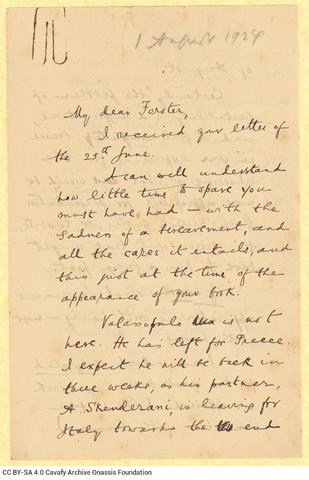 1 August 1924
My dear Forster,
I received your letter of
the 25th June.
I can well understand
how little time to spare you
must have had — with the
sadness of a bereavement, and
all the cares it entails, and
this just at the time of the
appearance of your book.
Valassopulo is not
here. He has left for Greece.
I expect he will be back in
three weeks, as his partner,
A. Skenderani, is leaving for
Italy towards the end
CC BY-SA 4.0 Cavafy Archive Onassis Foundation